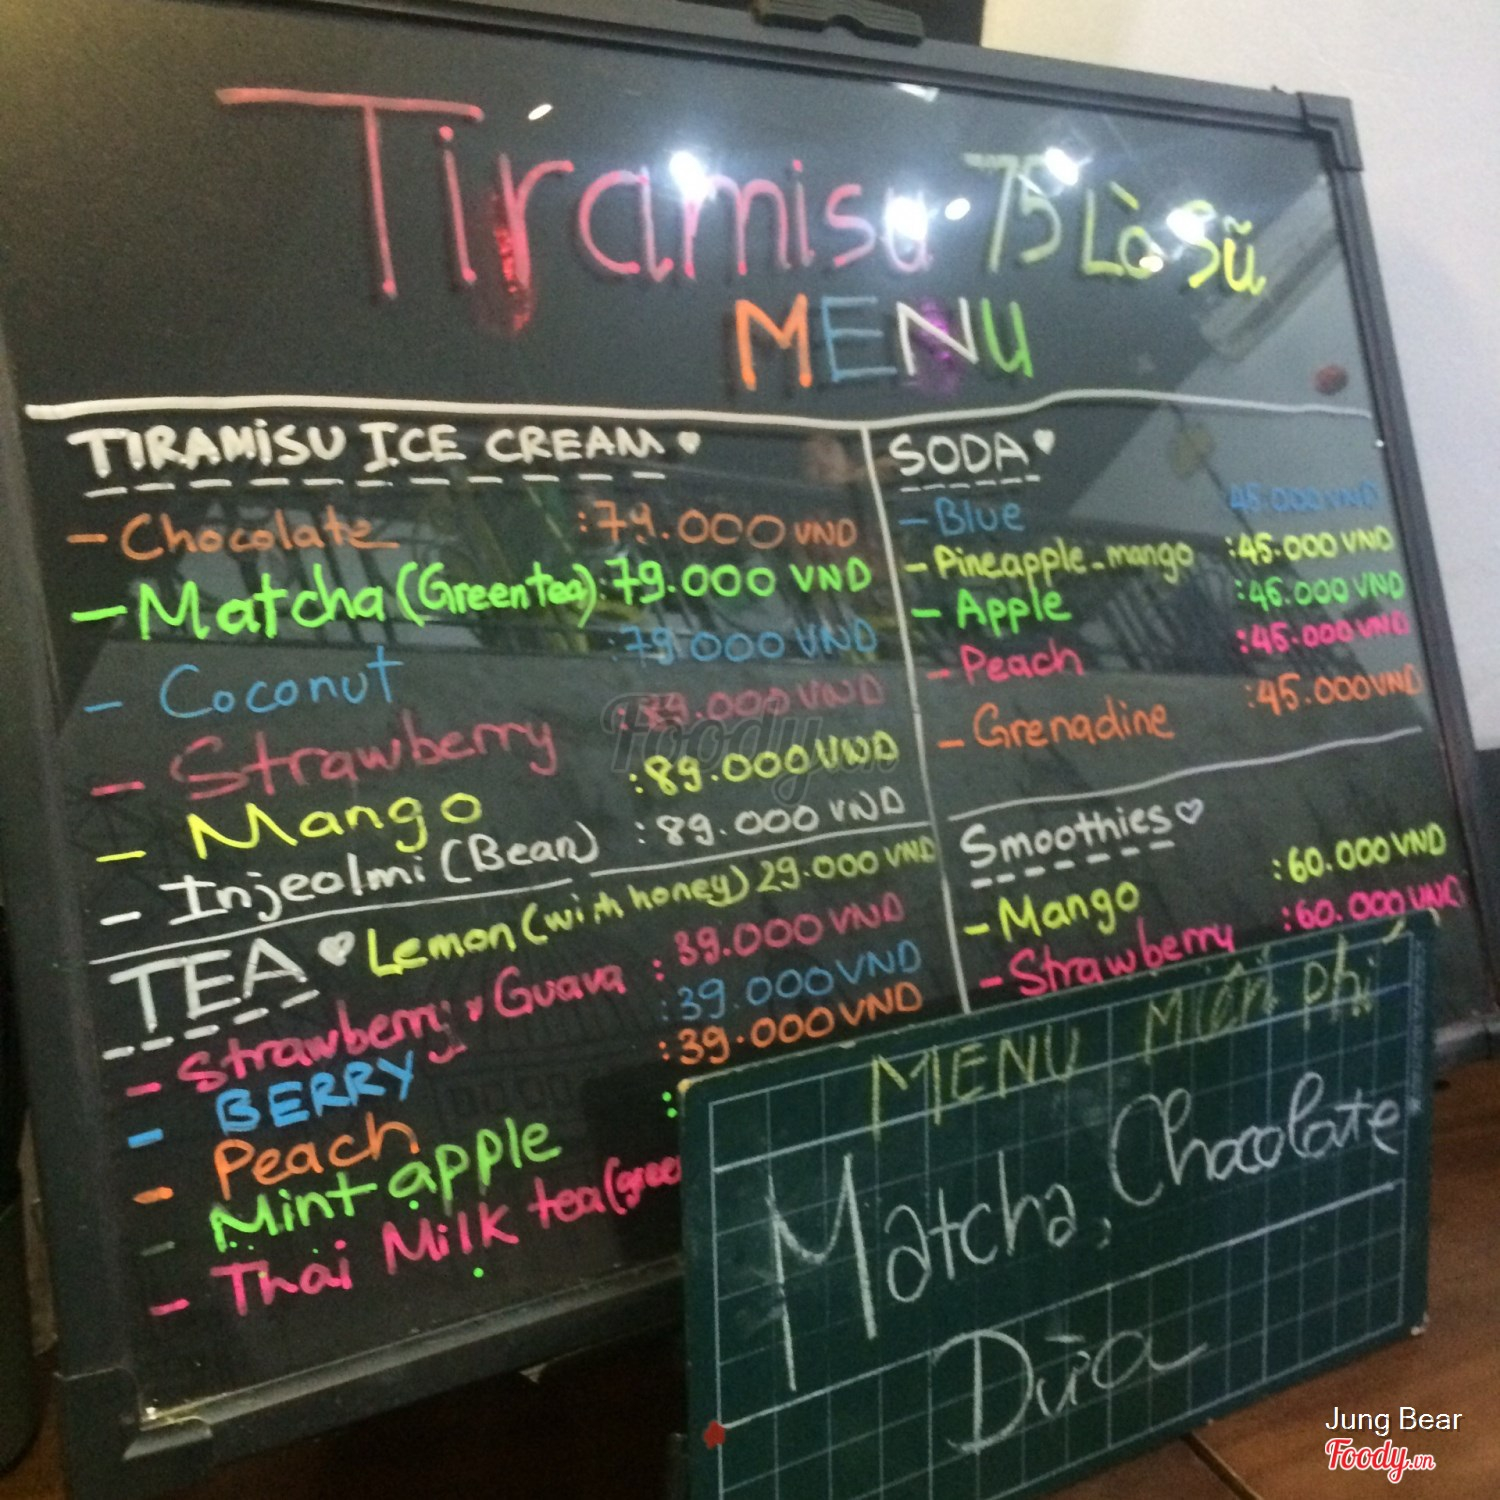 Tiramisu 75 Lò Sũ
MENU
TIRAMISU ICE CREAM
- Chocolate :79.000 VND
- Matcha (Green tea) :79.000 VND
- Coconut :79.000 VND
- Strawberry .000 VND
- Mango :89.000 VND
- Injeolmi (Bean) :89.000 VND
TEA Lemon (with honey) 29.000 VND
- Strawberry Guava :39.000 VND
- BERRY :39.000 VND
- Peach :39.000 VND
- Mint apple :
- Thai Milk tea (green
SODA
- Blue 45.000 VND
- Pineapple-mango :45.000 VND
- Apple :45.000 VND
- Peach :45.000 VND
- Grenadine :45.000 VND
Smoothies
- Mango :60.000 VND
- Strawberry :60.000 VND
MENU Miễn Phí
Matcha, Chocolate
Dừa
Foody.vn
Jung Bear
Foody.vn